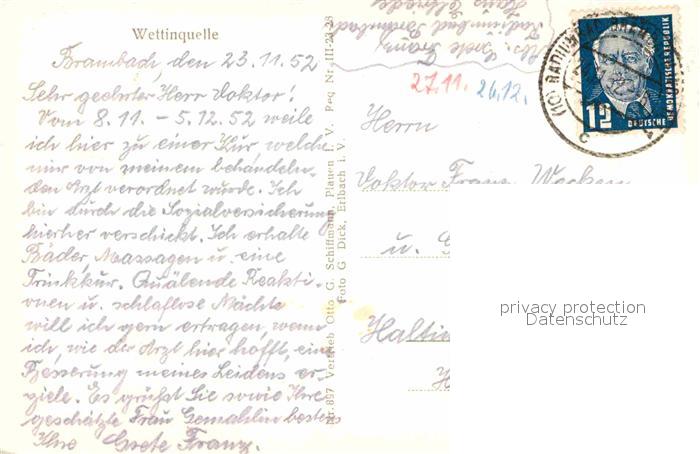 Wettinquelle
Brambach, den 23.11.52
Sehr geehrter Herr Doktor!
Vom 8.11. – 5.12.52 weile
ich hier zu einer Kur welche
mir von meinem behandeln-
den Arzt verordnet wurde. Ich
bin durch die Sozialversicherung
hierher verschickt. Ich erhalte
Bäder, Massagen u. eine
Trinkkur. Quälende Reakti-
onen u. schlaflose Nächte
will ich gern ertragen, wenn
ich, wie der Arzt hier hofft, eine
Besserung meines Leidens er-
ziele. Es grüßt Sie sowie Ihre
geschätzte Frau Gemahlin bestens
Ihre Grete Franz.
Nr. 897 Vertrieb Otto G. Schiffmann, Plauen i. V. Peg Nr. III-23-28
Foto G Dick, Erlbach i. V.
Abs. Grete Franz,
Radiumbad Brambach
Haus
27.11. 26.12.
(10) RADIUMBAD
c
12
DEUTSCHE
DEMOKRATISCHE REPUBLIK
Herrn
Doktor Franz
u.
privacy protection
Datenschutz